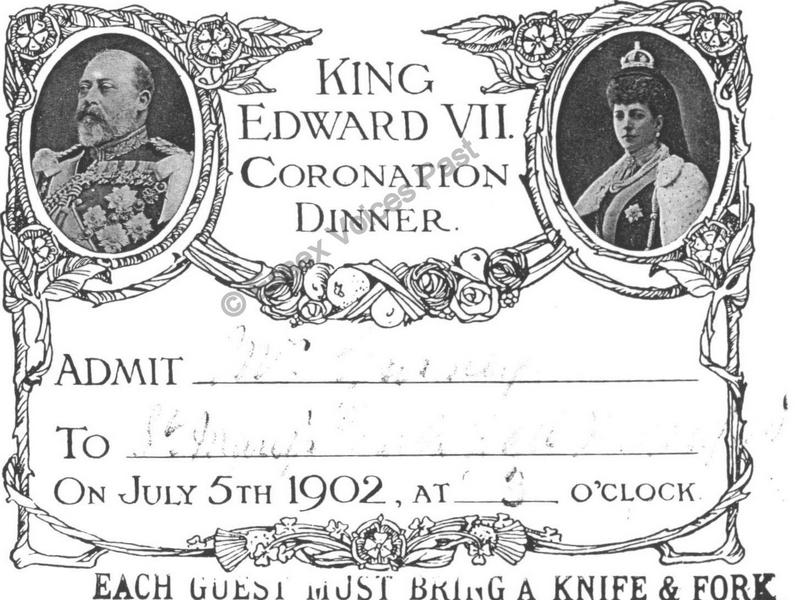 KING
EDWARD VII.
CORONATION
DINNER.
© Essex Voices Past
ADMIT Mr
TO St Mary's
ON JULY 5TH 1902, AT O'CLOCK
EACH GUEST MUST BRING A KNIFE & FORK